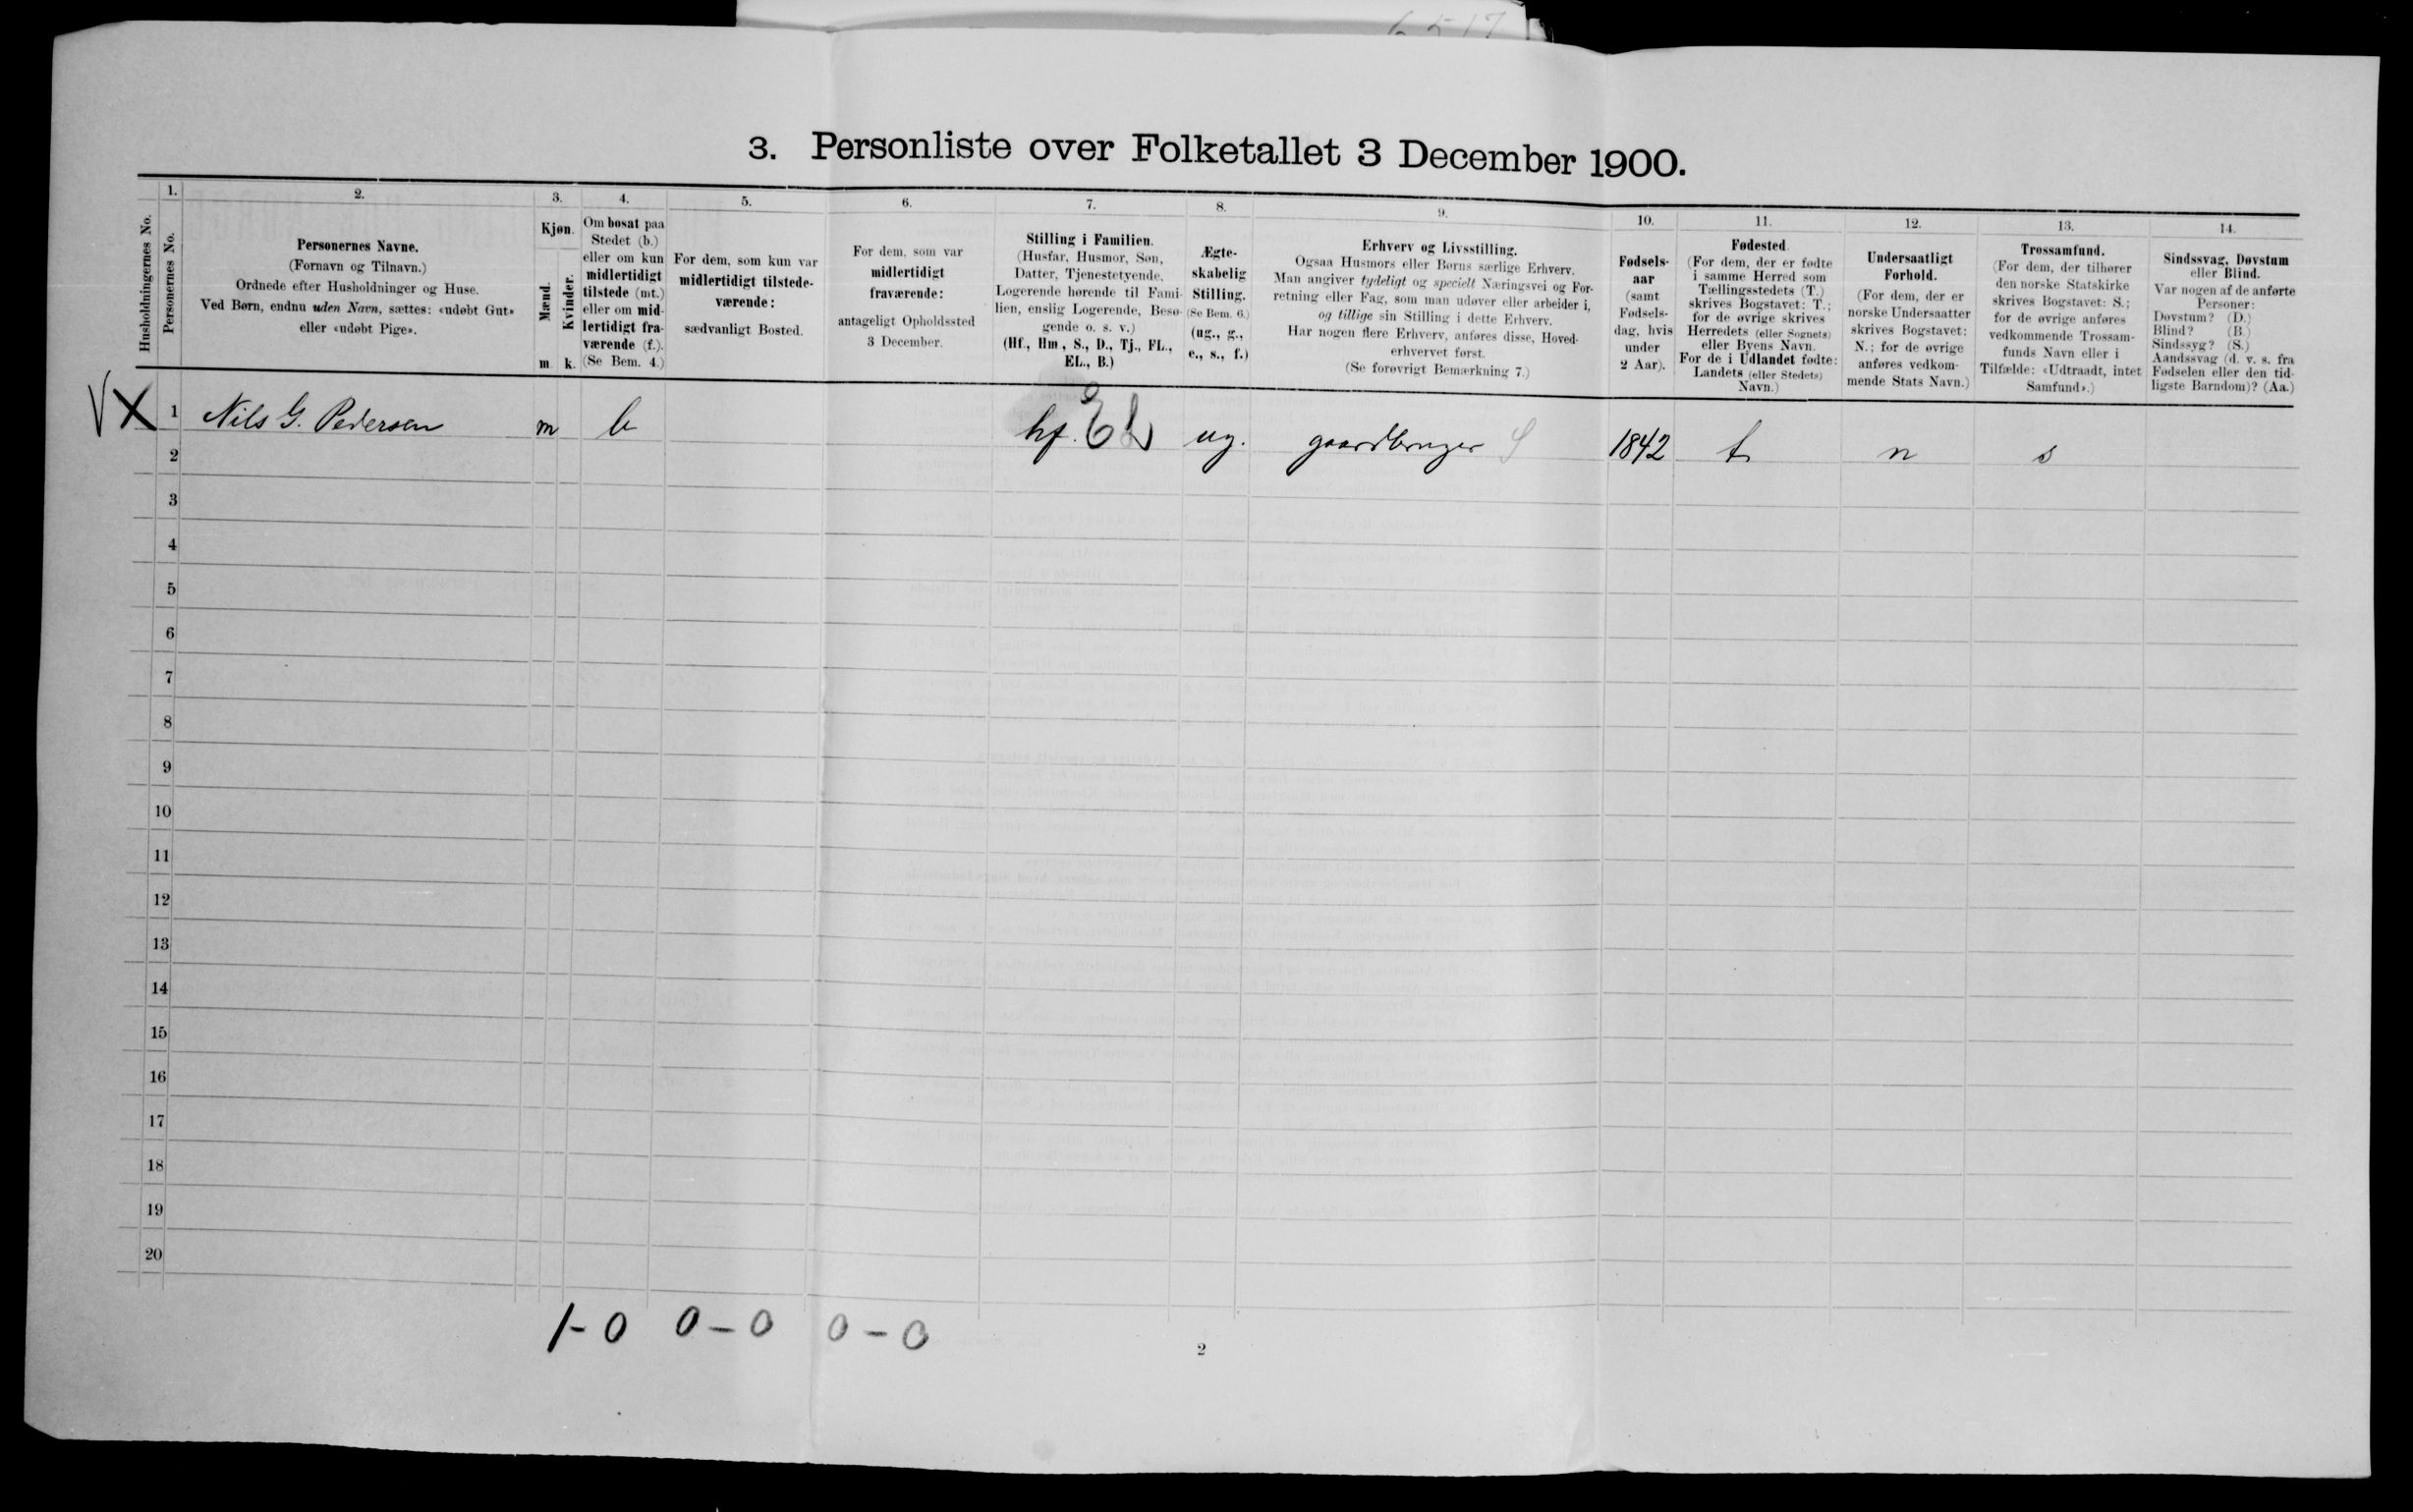 6517
3. Personliste over Folketallet 3 December 1900.
Husholdningernes No.
1.
Personernes No.
2.
Personernes Navne.
(Fornavn og Tilnavn.)
Ordnede efter Husholdninger og Huse.
Ved Børn, endnu uden Navn, sættes: «udøbt Gut»
eller «udøbt Pige».
3.
Kjøn.
Mænd.
Kvinder.
m.
k.
4.
Om bosat paa
Stedet (b.)
eller om kun
midlertidigt
tilstede (mt.)
eller om mid-
lertidigt fra-
værende (f.).
(Se Bem. 4.)
5.
For dem, som kun var
midlertidigt tilstede-
værende:
sædvanligt Bosted.
6.
For dem, som var
midlertidigt
fraværende:
antageligt Opholdssted
3 December.
7.
Stilling i Familien.
(Husfar, Husmor, Søn,
Datter, Tjenestetyende,
Logerende hørende til Fami-
lien, enslig Logerende, Besø-
gende o. s. v.)
(Hf., Hm., S., D., Tj., FL.,
EL., B.)
8.
Ægte-
skabelig
Stilling.
(Se Bem. 6.)
(ug., g.,
e., s., f.)
9.
Erhverv og Livsstilling.
Ogsaa Husmors eller Børns særlige Erhverv.
Man angiver tydeligt og specielt Næringsvei og For-
retning eller Fag, som man udøver eller arbeider i,
og tillige sin Stilling i dette Erhverv.
Har nogen flere Erhverv, anføres disse, Hoved-
erhvervet først.
(Se forøvrigt Bemærkning 7.)
10.
Fødsels-
aar
(samt
Fødsels-
dag, hvis
under
2 Aar).
11.
Fødested
(For dem, der er fødte
i samme Herred som
Tællingsstedets (T.)
skrives Bogstavet: T.;
for de øvrige skrives
Herredets (eller Sognets)
eller Byens Navn.
For de i Udlandet fødte:
Landets (eller Stedets)
Navn.)
12.
Undersaatligt
Forhold.
(For dem, der er
norske Undersaatter
skrives Bogstavet:
N.; for de øvrige
anføres vedkom-
mende Stats Navn.)
13.
Trossamfund.
(For dem, der tilhører
den norske Statskirke
skrives Bogstavet: S.;
for de øvrige anføres
vedkommende Trossam-
funds Navn eller i
Tilfælde: «Udtraadt, intet
Samfund».)
14.
Sindssvag, Døvstum
eller Blind.
Var nogen af de anførte
Personer:
Døvstum? (D.)
Blind? (B.)
Sindssyg? (S.)
Aandssvag (d. v. s. fra
Fødselen eller den tid-
ligste Barndom)? (Aa.)
X 1 Nils G. Pedersen m b hf. EL ug. gaardbruger S 1842 t n s
2
3
4
5
6
7
8
9
10
11
12
13
14
15
16
17
18
19
20
1-0 0-0 0-0
2